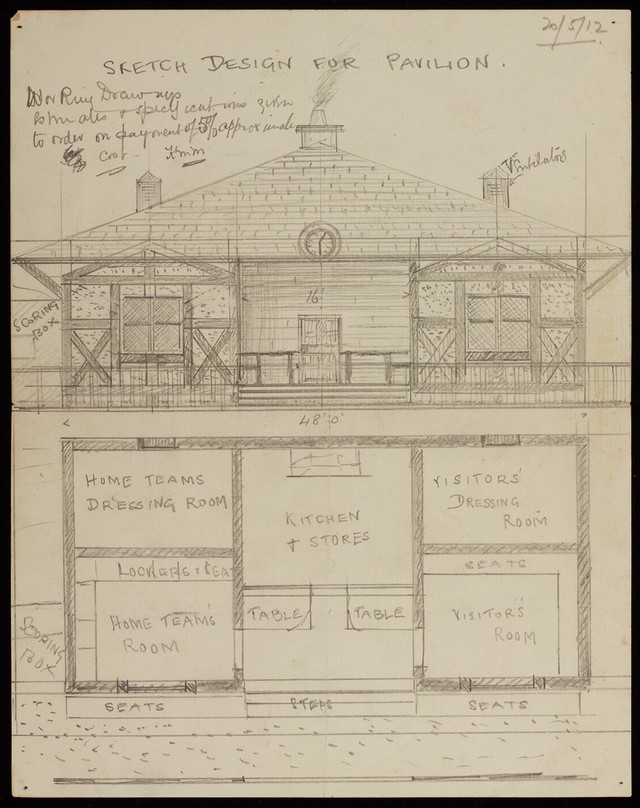 20/5/12
SKETCH DESIGN FOR PAVILION.
Working Drawings
Estimates & specifications given
to order on payment of 5% approximate
cost.
Ventilator
SCORING
BOX
16'
48'0"
HOME TEAMS
DRESSING ROOM
VISITORS'
DRESSING
ROOM
KITCHEN
& STORES
LOCKERS & SEAT
SEATS
TABLE
TABLE
HOME TEAM'S
ROOM
VISITORS'
ROOM
SCORING
BOX
SEATS
STEPS
SEATS